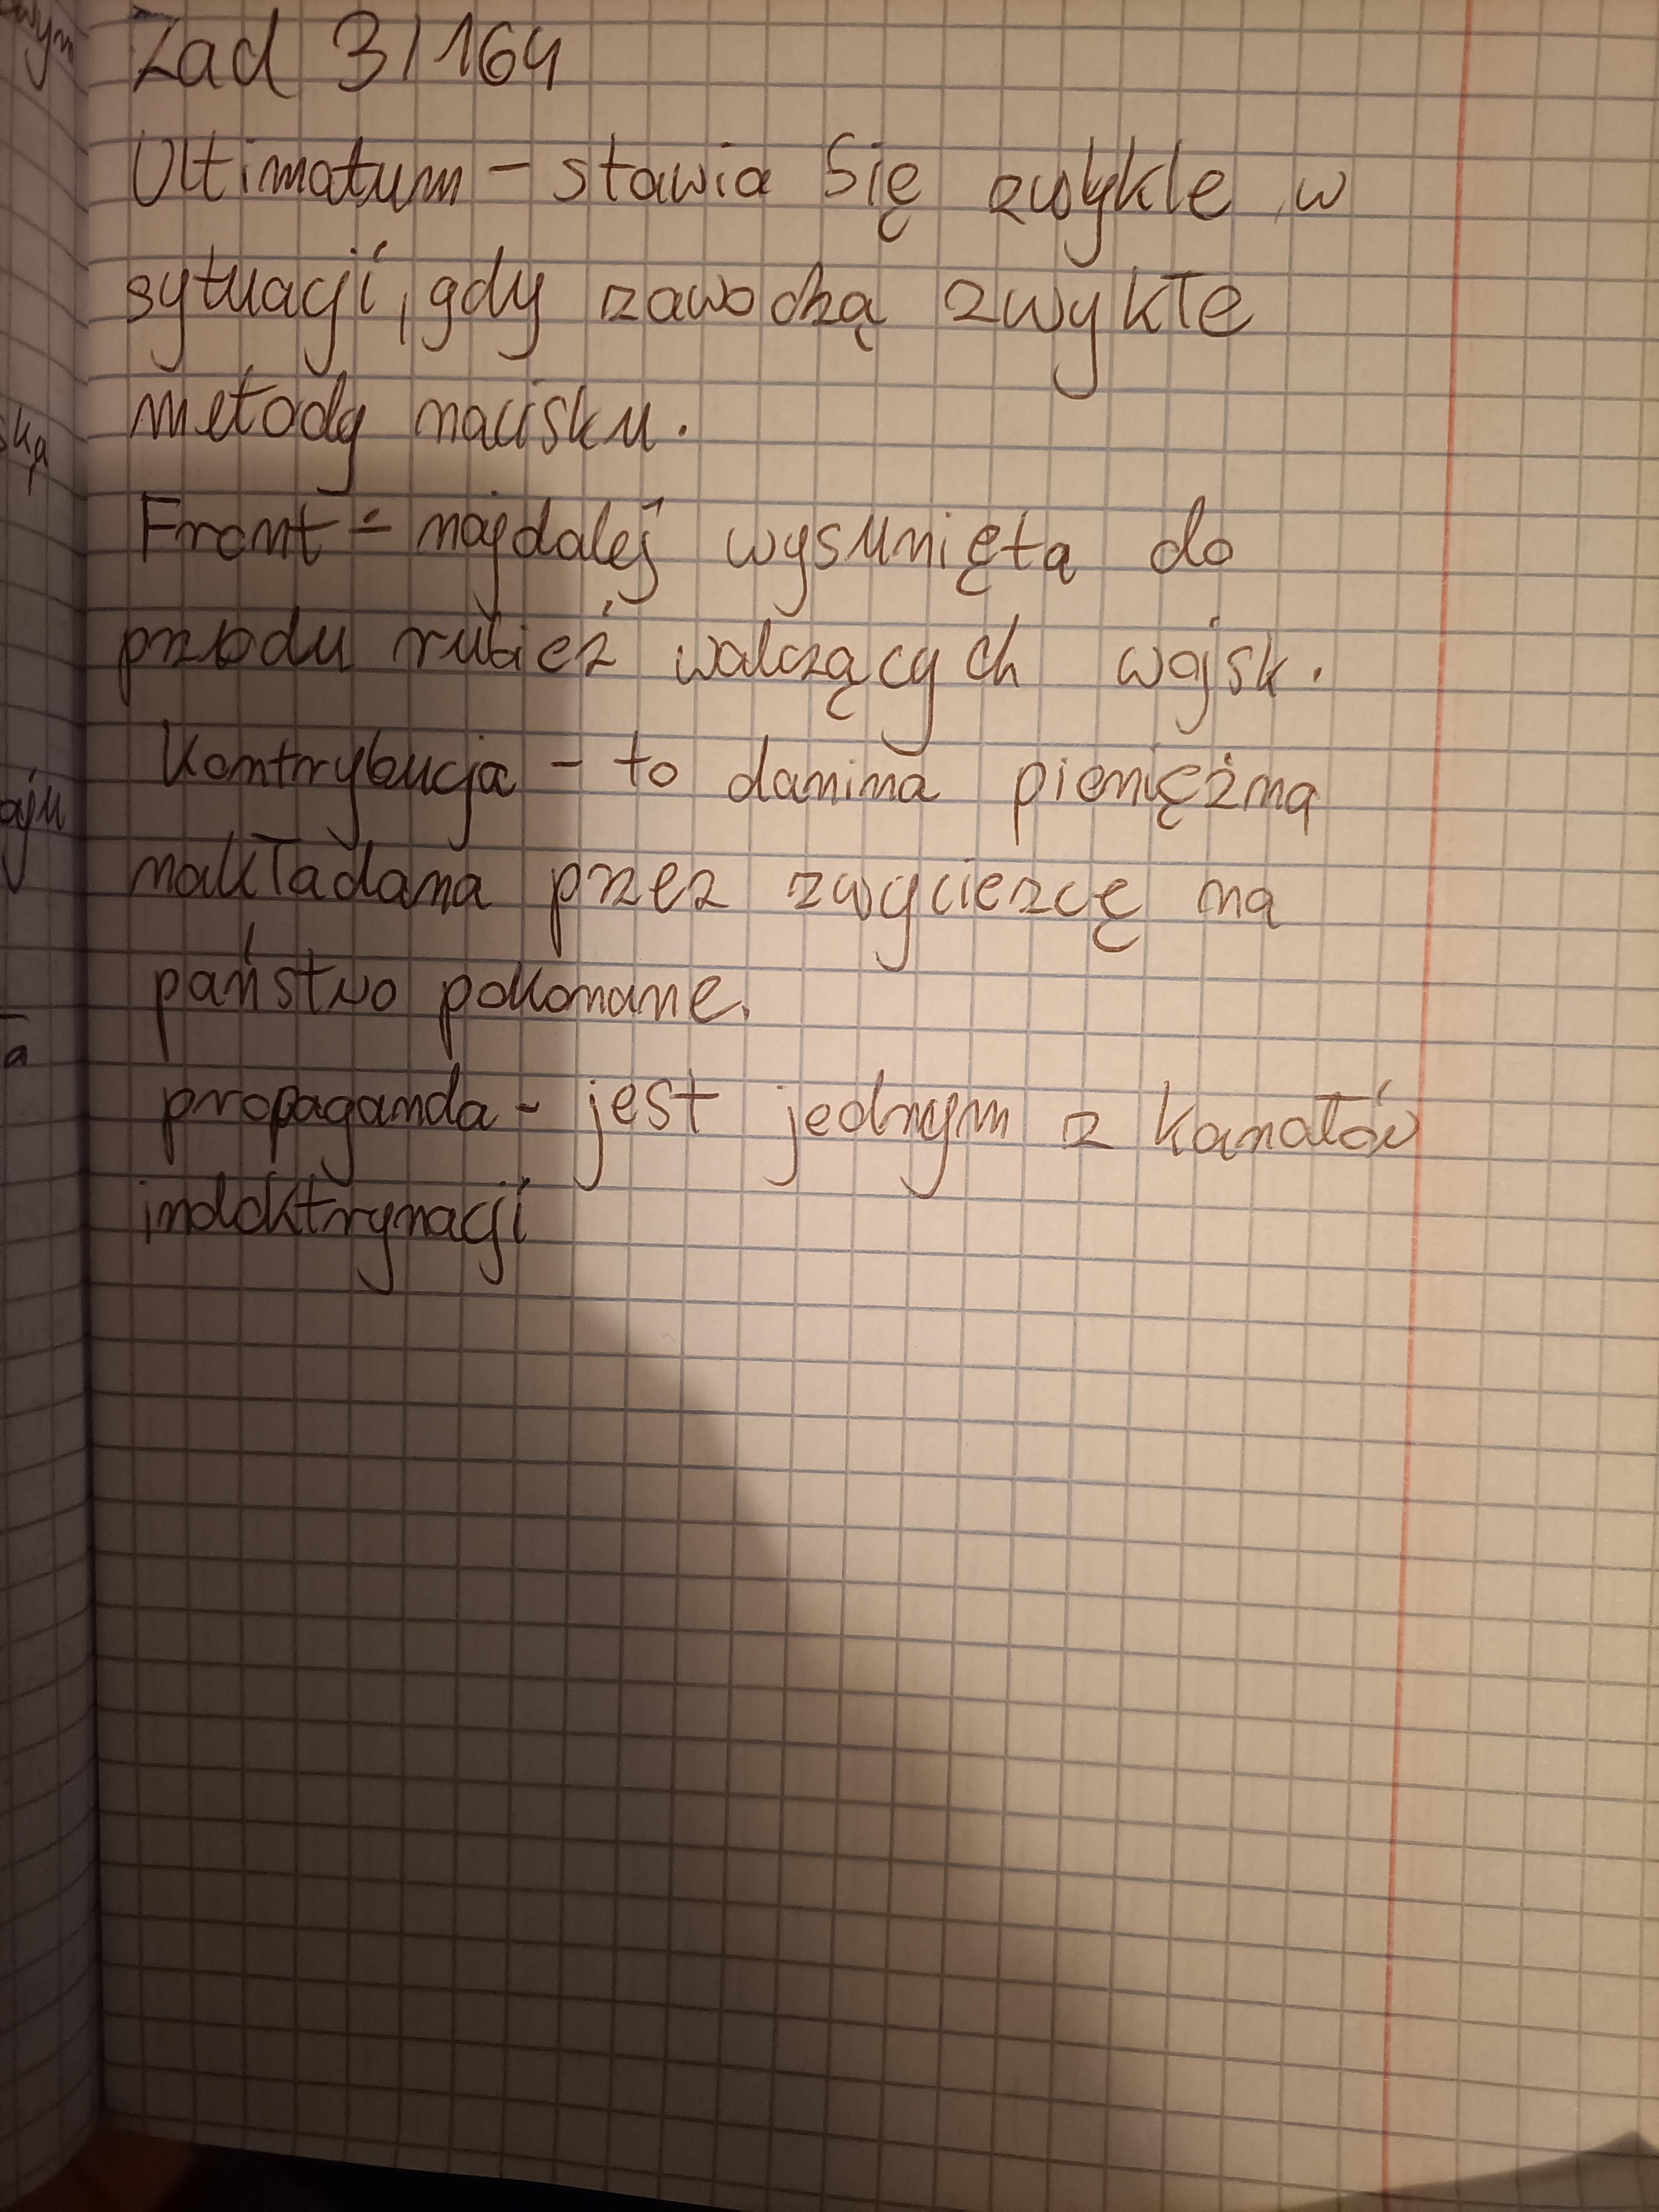 Zad 3/164
Ultimatum - stawia się zwykle w
sytuacji, gdy zawodzą zwykłe
metody nacisku.
Front - najdalej wysunięta do
przodu rubież walczących wojsk.
Kontrybucja - to danina pieniężna
nakładana przez zwycierzcę na
państwo pokonane.
propaganda - jest jednym z kanałów
indoktrynacji